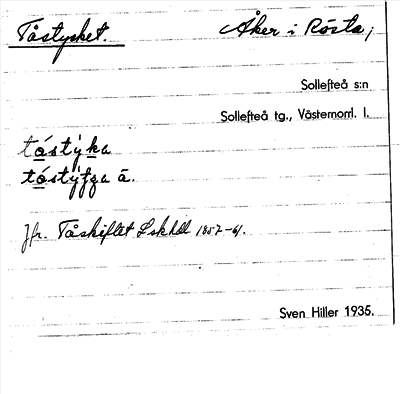 Tåstycket. Åker i Rösta;
Sollefteå s:n
Sollefteå tg., Västernorrl. l.
tåstyka
ä.
Jfr. Tåskiftet Lskhdl 1857-61.
Sven Hiller 1935.